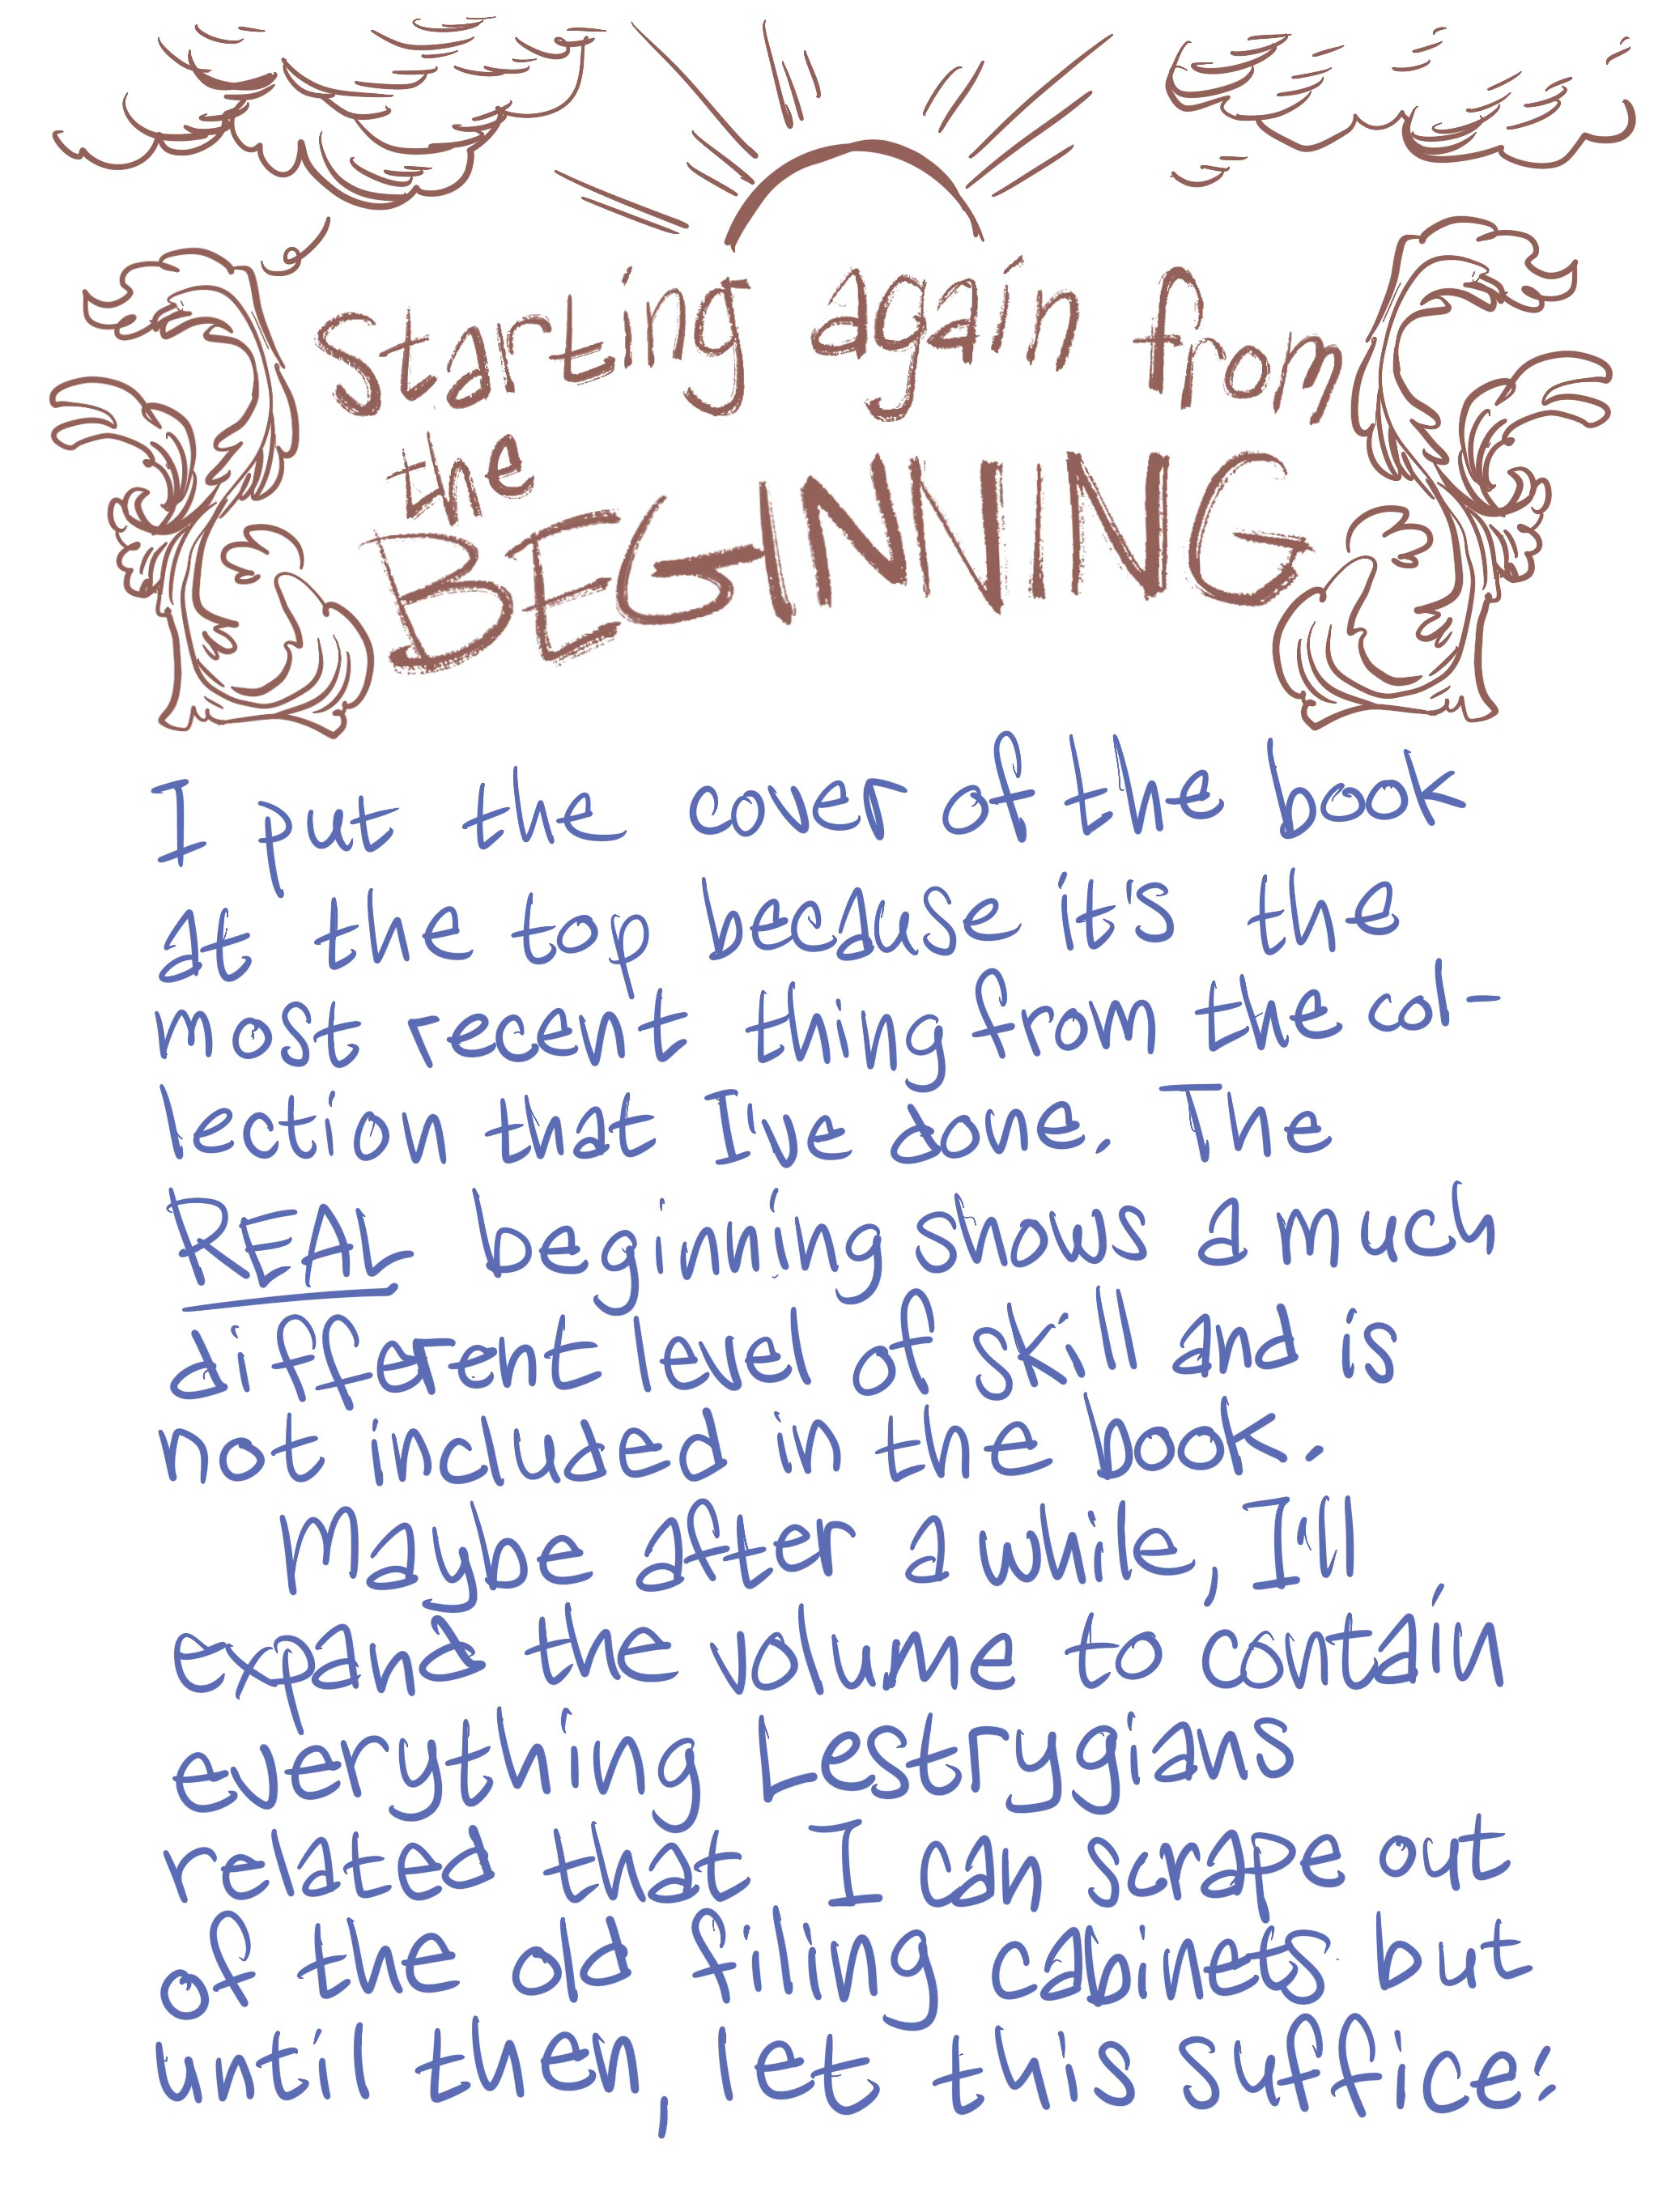 Starting again from
the
BEGINNING
I put the cover of the book
at the top because it's the
most recent thing from the col-
lection that I've done. The
REAL beginning shows a much
different level of skill and is
not included in the book.
Maybe after a while, I'll
expand the volume to contain
everything Lestrygians
related that I can scrape out
of the old filing cabinets but
until then, let this suffice: